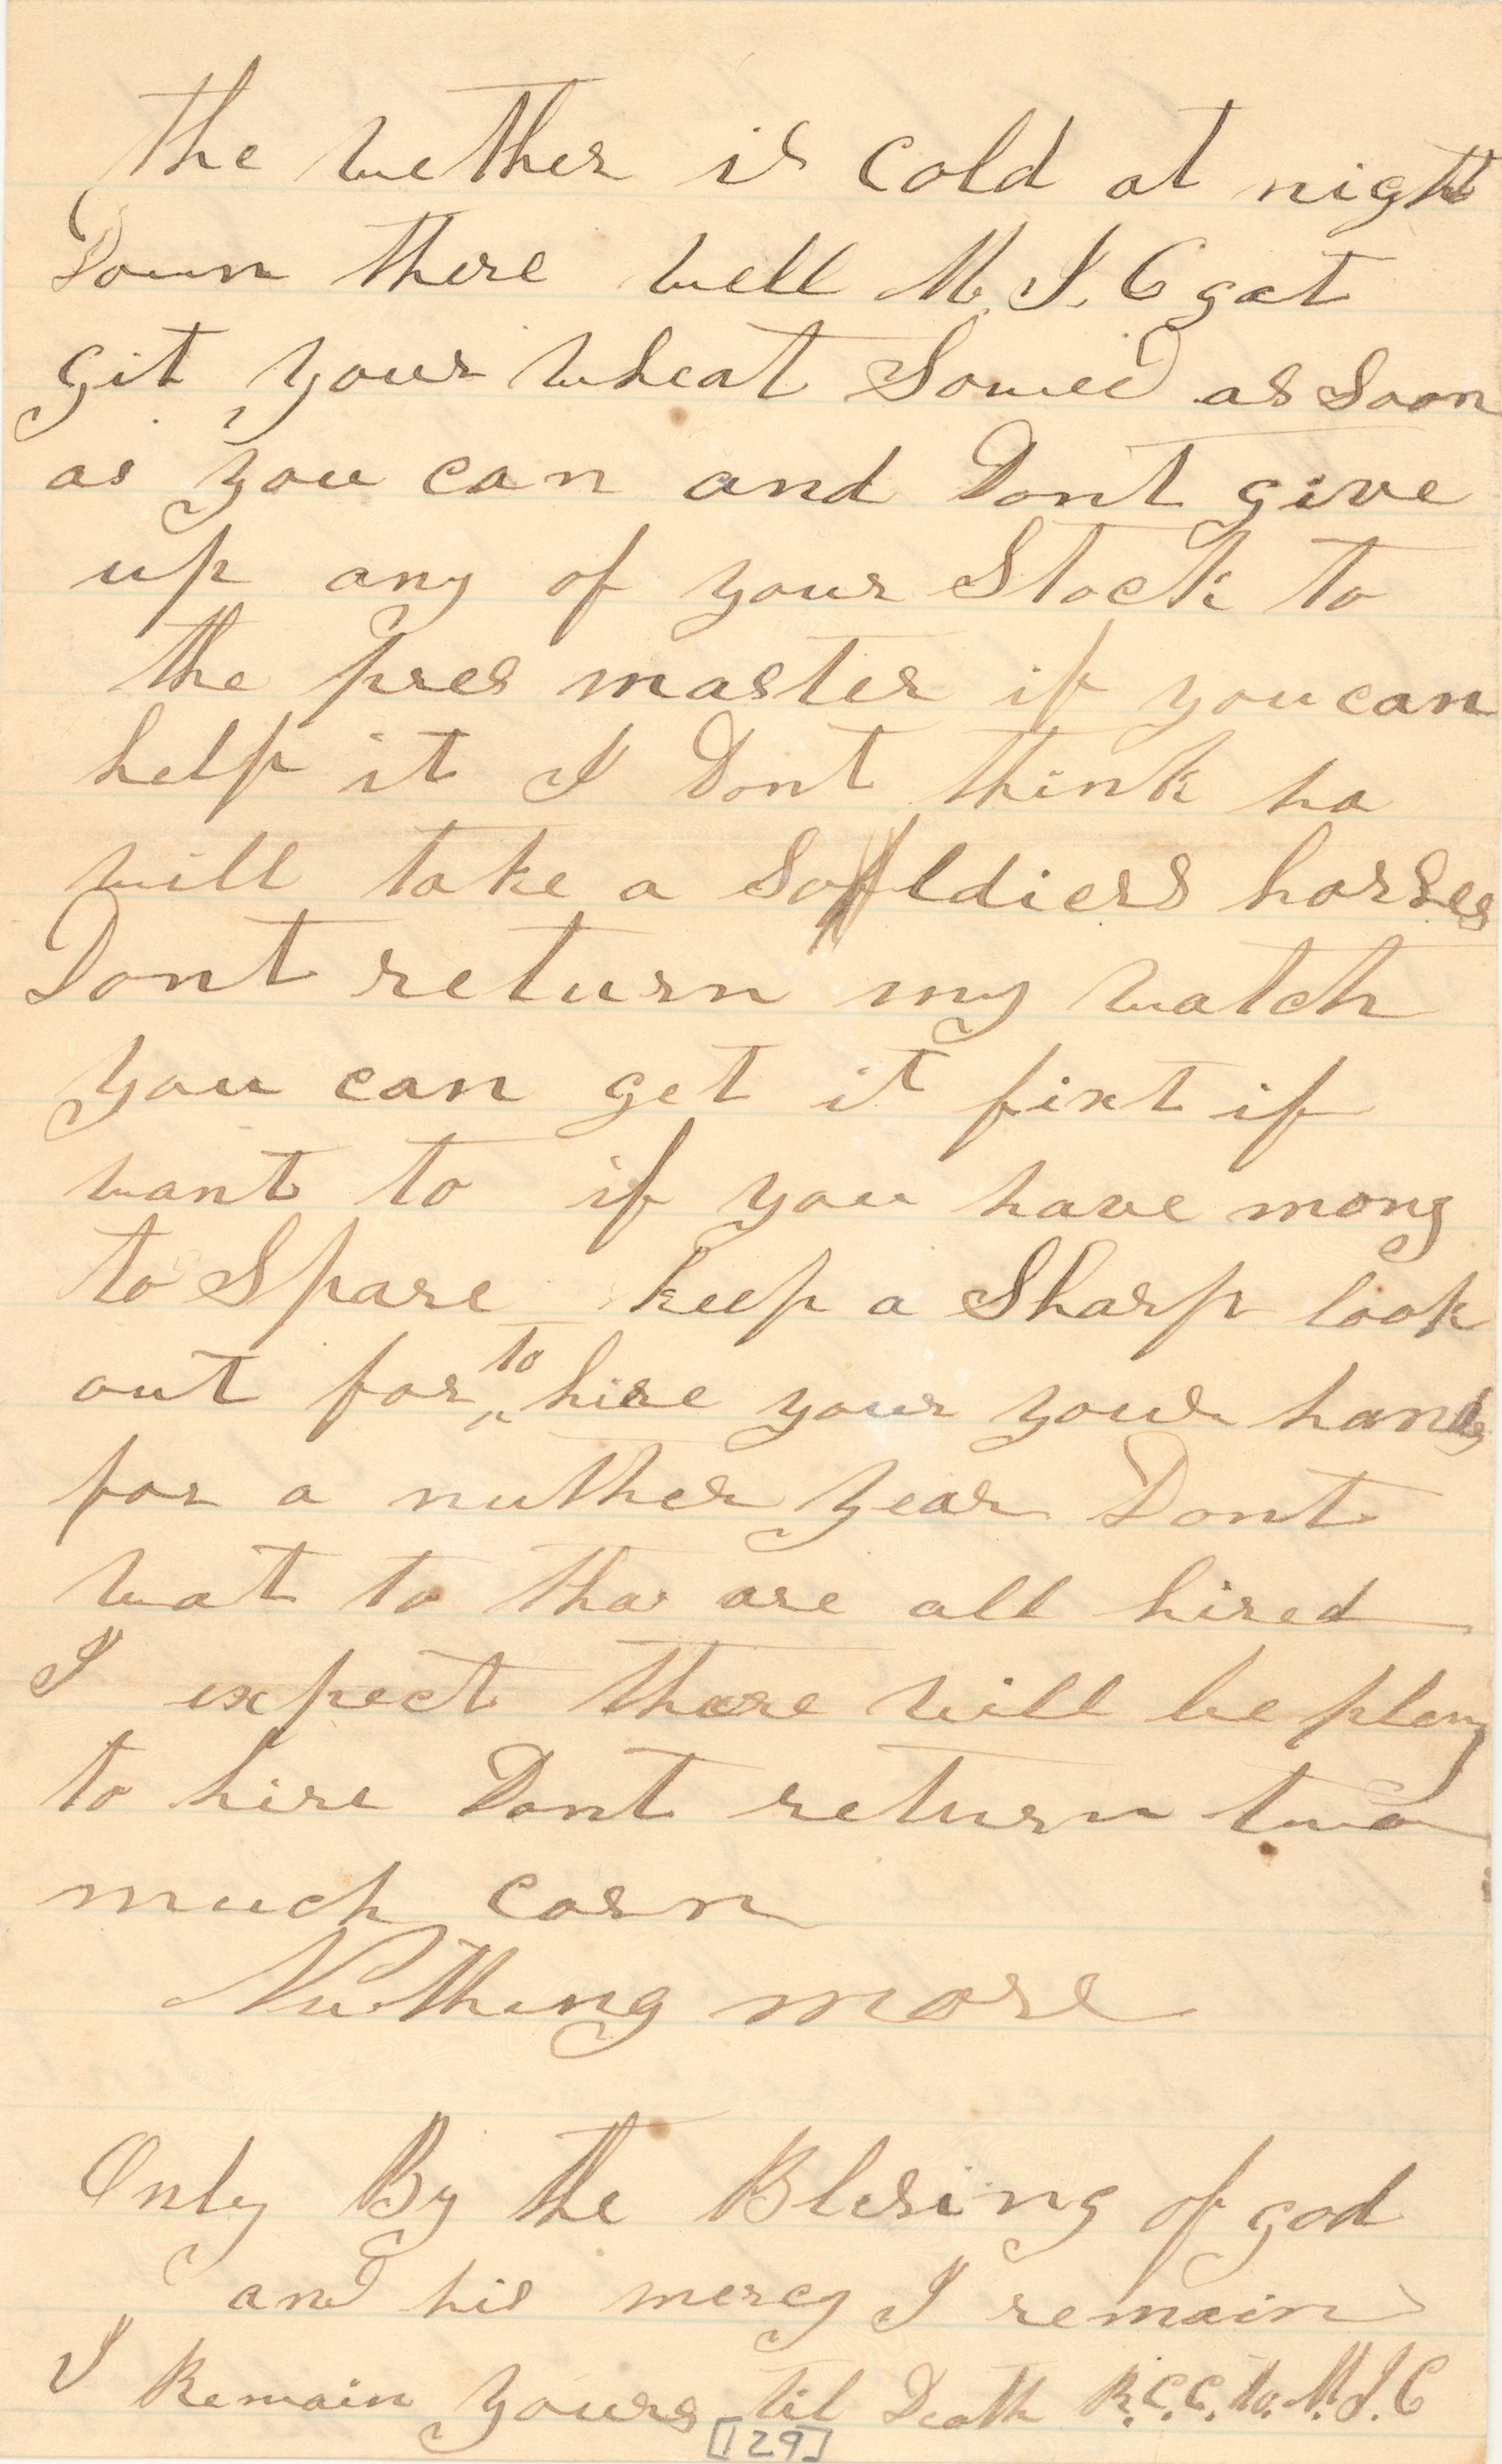 the wether is cold at night
Down there well M. J. C gat
git your wheat Sowed as Soon
as you can and Dont give
up any of your Stock to
the pres master if you can
help it I Dont think ha
will take a Soldiers horses
Dont return my watch
you can get it fixt if
want to if you have mony
to Spare keep a Sharp look
out for to hire your your hands
for a nuther year Dont
wat to tha are all hired
I expect thare will be plany
to hire Dont return two
much corn
Nuthing more
Only By the Blesing of god
and his mercy I remain
I Remain yours til Death R. C. C. to. M. J. C
[129]